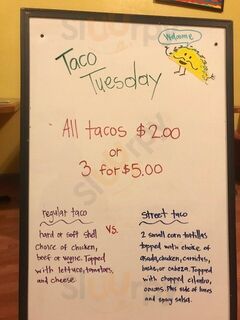 Welcome
Taco
Tuesday
All tacos $2.00
or
3 for $5.00
regular taco
hard or soft shell
choice of chicken,
beef or veggie. Topped
with lettuce, tomatoes,
and cheese
vs.
street taco
2 small corn tortillas
topped with choice of
asada, chicken, carnitas,
or cabeza. Topped
with chopped cilantro,
onions. Plus side of limes
and spicy salsa.